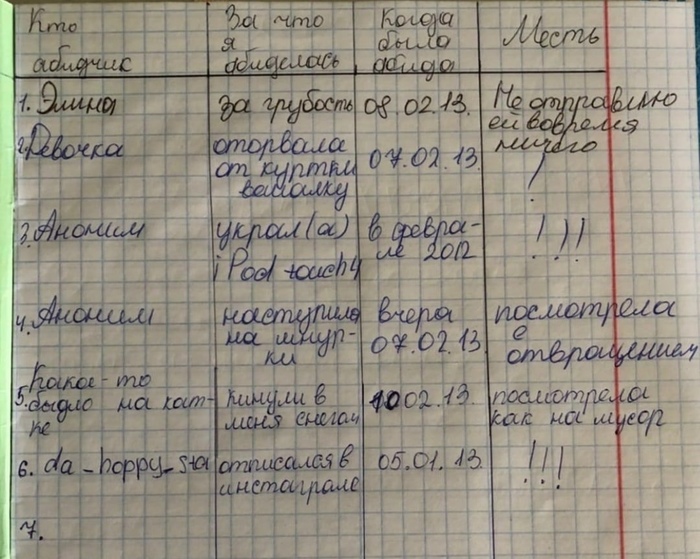 Кто За что Когда Месть
я была
абидчик абиделась абида
1. Элина за грубость 08.02.13. Не отправлю
ей вовремя
ничего
2. Девочка оторвала 07.02.13 !
от куртки
вашалку
3. Аноним украл(а) в февра- !!!
iPod touch4 ле 2012
4. Аноним наступила вчера посмотрела
на шнур- 07.02.13 с
ки отвращением
Какое-то
5. быдло на кат- кинули в 10 02.13. посмотрела
ке меня снегом как на мусор
6. da_hoppy_sta отписался в 05.01.13. !!!
инстаграме
7.